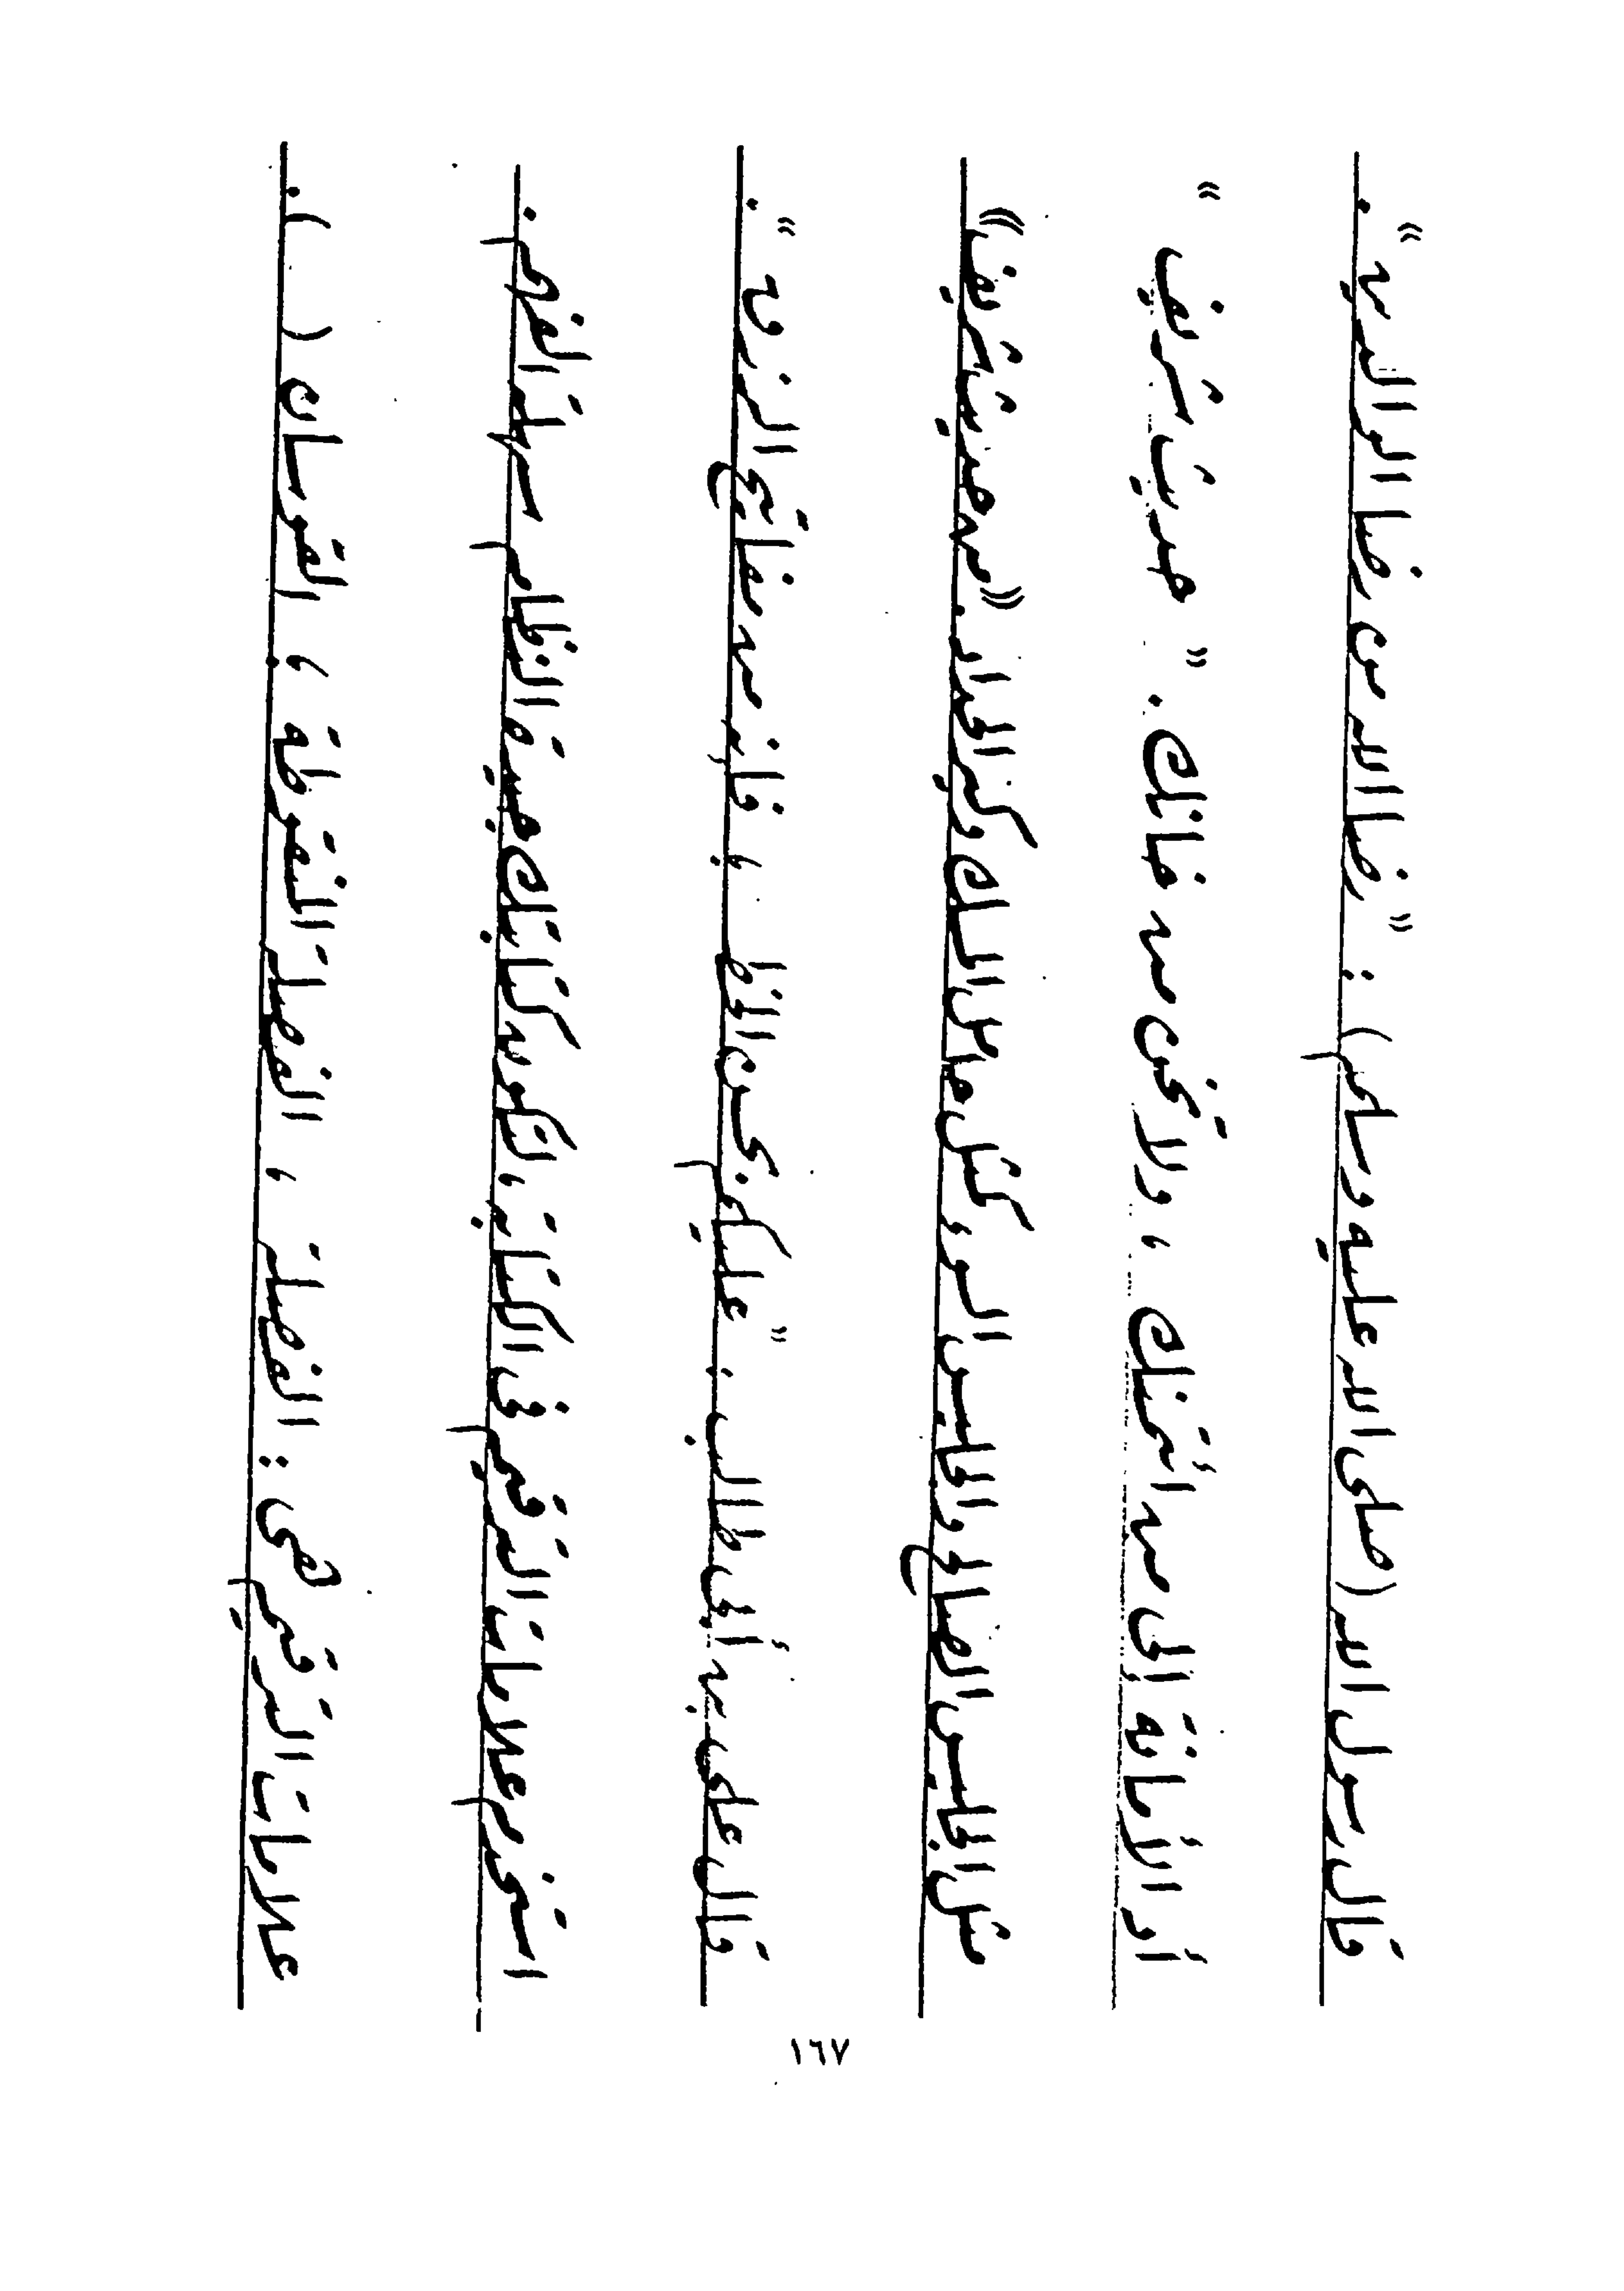 قال رسول الله (صلى الله عليه وسلم) : " رضا الله من رضا الوالدين " .
أد الأمانة إلى من ائتمنك ، ولا تخن من خانك . " حديث شريف "
مثل الجليس الصالح والجليس السوء كمثل حامل المسك وكير الحداد . (( من حديث شريف ))
قال على بن أبى طالب : " عليكم بحسن الخط ، فإنه من مفاتيح الرزق " .
استخدم علامات الترقيم فى الكتابة ، لتكون كتابتك جيدة النظام سهلة الفهم .
علامات الترقيم هى : الفصلة ، الفصلة المنقوطة ؛ القوسان ( ) .
١٦٧